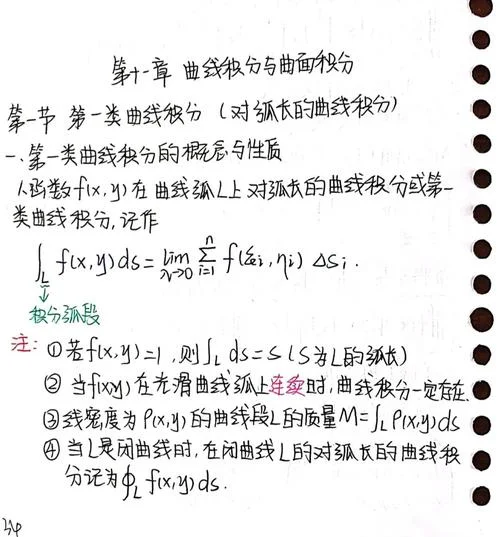 第十一章 曲线积分与曲面积分
第一节 第一类曲线积分 (对弧长的曲线积分)
一、第一类曲线积分的概念与性质
1.函数f(x,y)在曲线弧L上对弧长的曲线积分或第一
类曲线积分,记作
∫_L f(x,y)ds=lim_{λ→0} Σ_{i=1}^{n} f(ξi,ηi) Δsi.
↓
积分弧段
注: ①若f(x,y)=1,则∫_L ds=s(s为L的弧长)
②当f(x,y)在光滑曲线弧上连续时,曲线积分一定存在.
③线密度为ρ(x,y)的曲线段L的质量M=∫_L ρ(x,y)ds
④当L是闭曲线时,在闭曲线L的对弧长的曲线积
分记为∮_L f(x,y)ds.